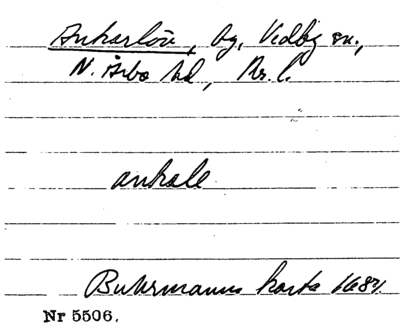 Ankarlöv, Ag, Vedby sn,
N. Åsbo hd, Kr. l.
ankale
Buhrmanns karta 1684.
Nr 5506.